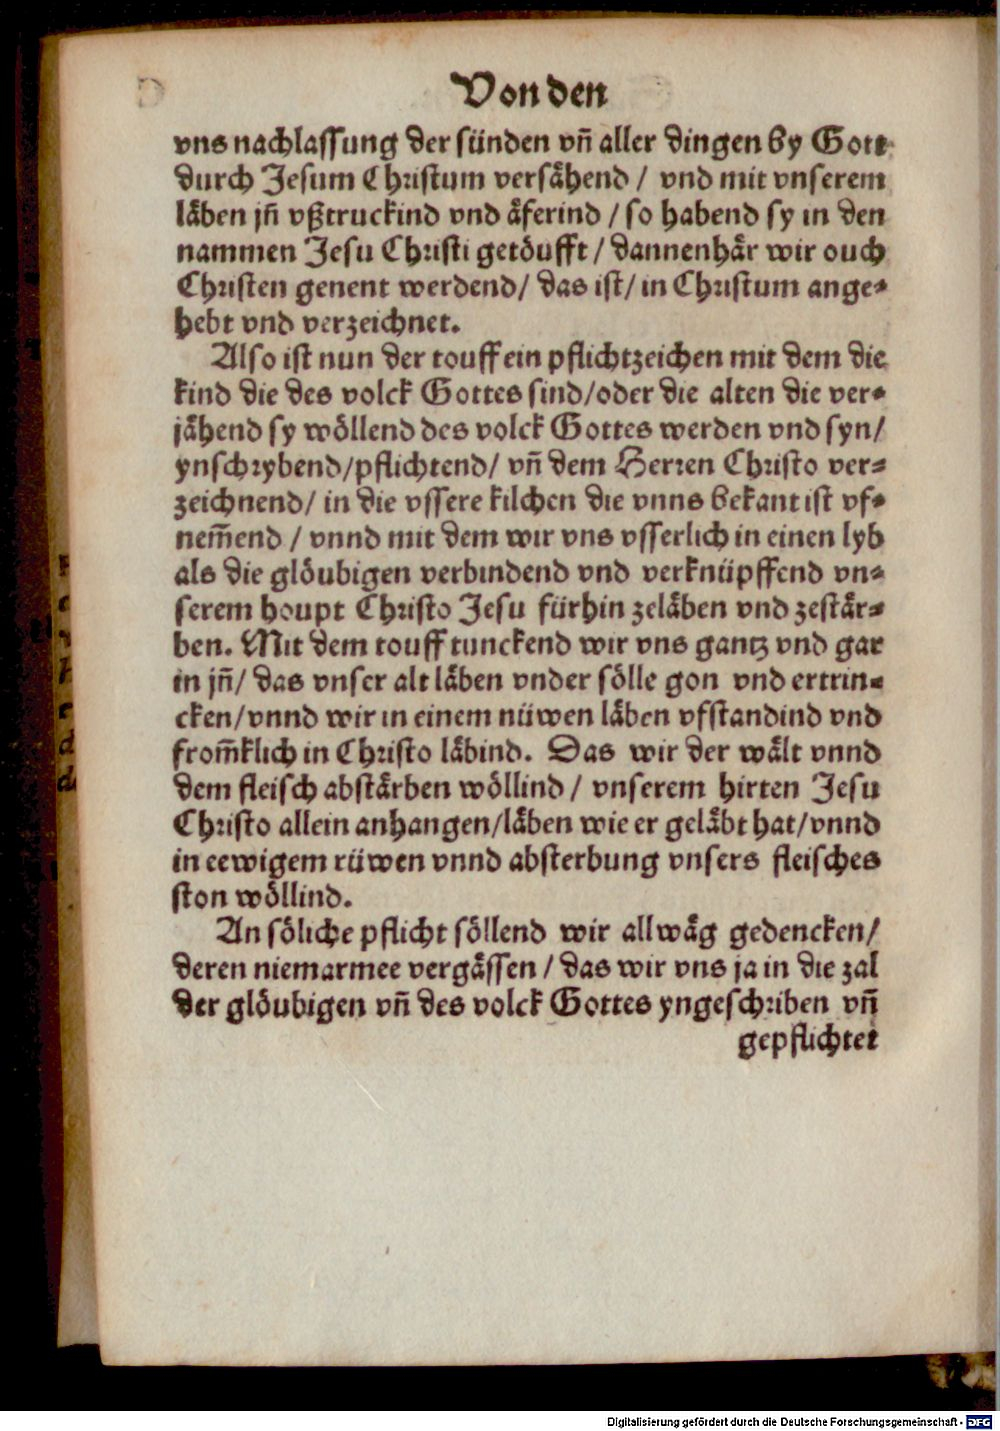 Von den
vns nachlassung der sünden vñ aller dingen by Gott
durch Jesum Christum versähend / vnd mit vnserem
läben jñ vßtruckind vnd äferind / so habend sy in den
nammen Jesu Christi getöufft / dannenhär wir ouch
Christen genent werdend / das ist / in Christum ange⸗
hebt vnd verzeichnet.
Also ist nun der touff ein pflichtzeichen mit dem die
kind die des volck Gottes sind / oder die alten die ver⸗
jähend sy wöllend des volck Gottes werden vnd syn /
ynschrybend / pflichtend / vñ dem Herren Christo ver⸗
zeichnend / in die vssere kilchen die vnns bekant ist vf⸗
nem̃end / vnnd mit dem wir vns vsserlich in einen lyb
als die glöubigen verbindend vnd verknüpffend vn⸗
serem houpt Christo Jesu fürhin zeläben vnd zestär⸗
ben. Mit dem touff tunckend wir vns gantz vnd gar
in jñ / das vnser alt läben vnder sölle gon vnd ertrin⸗
cken / vnnd wir in einem nüwen läben vfstandind vnd
from̃klich in Christo läbind. Das wir der wält vnnd
dem fleisch abstärben wöllind / vnserem hirten Jesu
Christo allein anhangen / läben wie er geläbt hat / vnnd
in eewigem rüwen vnnd absterbung vnsers fleisches
ston wöllind.
An söliche pflicht söllend wir allwäg gedencken /
deren niemarmee vergässen / das wir vns ja in die zal
der glöubigen vñ des volck Gottes yngeschriben vñ
gepflichtet
Digitalisierung gefördert durch die Deutsche Forschungsgemeinschaft - DFG